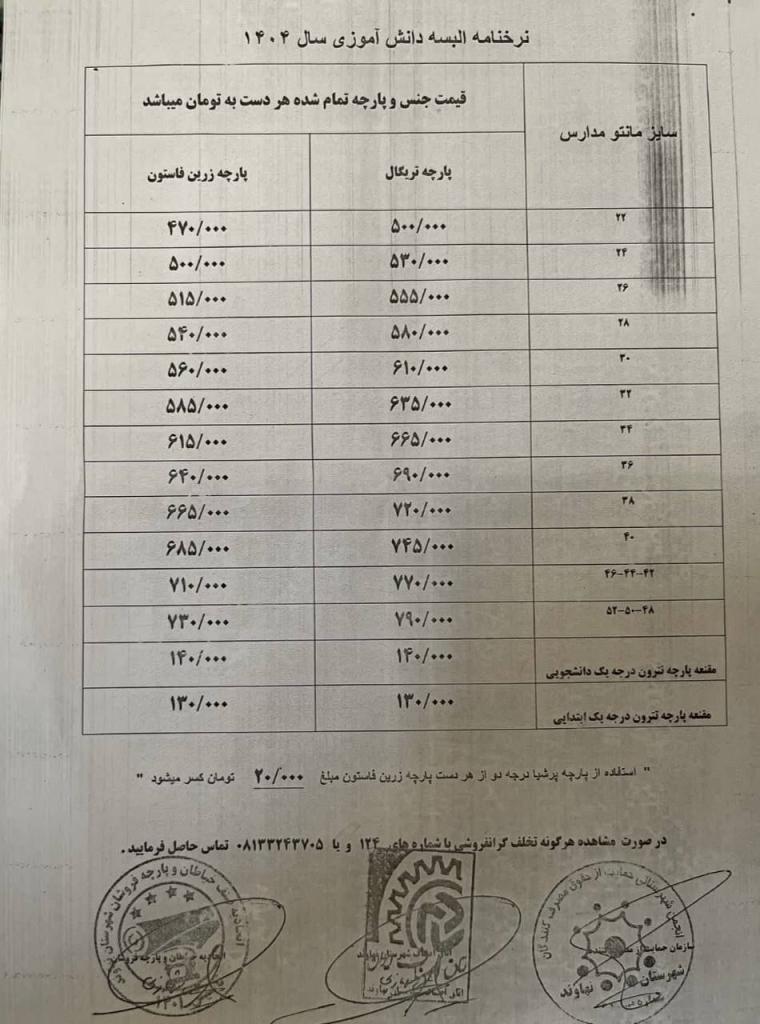 نرخنامه البسه دانش آموزی سال ۱۴۰۴
سایز مانتو مدارس
قیمت جنس و پارچه تمام شده هر دست به تومان میباشد
پارچه تریگال
پارچه زرین فاستون
۲۲ ۵۰۰/۰۰۰ ۴۷۰/۰۰۰
۲۴ ۵۳۰/۰۰۰ ۵۰۰/۰۰۰
۲۶ ۵۵۵/۰۰۰ ۵۱۵/۰۰۰
۲۸ ۵۸۰/۰۰۰ ۵۴۰/۰۰۰
۳۰ ۶۱۰/۰۰۰ ۵۶۰/۰۰۰
۳۲ ۶۳۵/۰۰۰ ۵۸۵/۰۰۰
۳۴ ۶۶۵/۰۰۰ ۶۱۵/۰۰۰
۳۶ ۶۹۰/۰۰۰ ۶۴۰/۰۰۰
۳۸ ۷۲۰/۰۰۰ ۶۶۵/۰۰۰
۴۰ ۷۴۵/۰۰۰ ۶۸۵/۰۰۰
۴۲-۴۴-۴۶ ۷۷۰/۰۰۰ ۷۱۰/۰۰۰
۴۸-۵۰-۵۲ ۷۹۰/۰۰۰ ۷۳۰/۰۰۰
مقنعه پارچه تترون درجه یک دانشجویی ۱۴۰/۰۰۰ ۱۴۰/۰۰۰
مقنعه پارچه تترون درجه یک ابتدایی ۱۳۰/۰۰۰ ۱۳۰/۰۰۰
" استفاده از پارچه پرشیا درجه دو از هر دست پارچه زرین فاستون مبلغ ۲۰/۰۰۰ تومان کسر میشود "
در صورت مشاهده هرگونه تخلف گرانفروشی با شماره های ۱۲۴ و یا ۰۸۱۳۳۲۴۳۷۰۵ تماس حاصل فرمایید.
انجمن شهرستانی حمایت از حقوق مصرف کنندگان
سازمان حمایت از
شهرستان نهاوند
اتاق اصناف شهرستان نهاوند
خیاطان و پارچه فروشان شهرستان